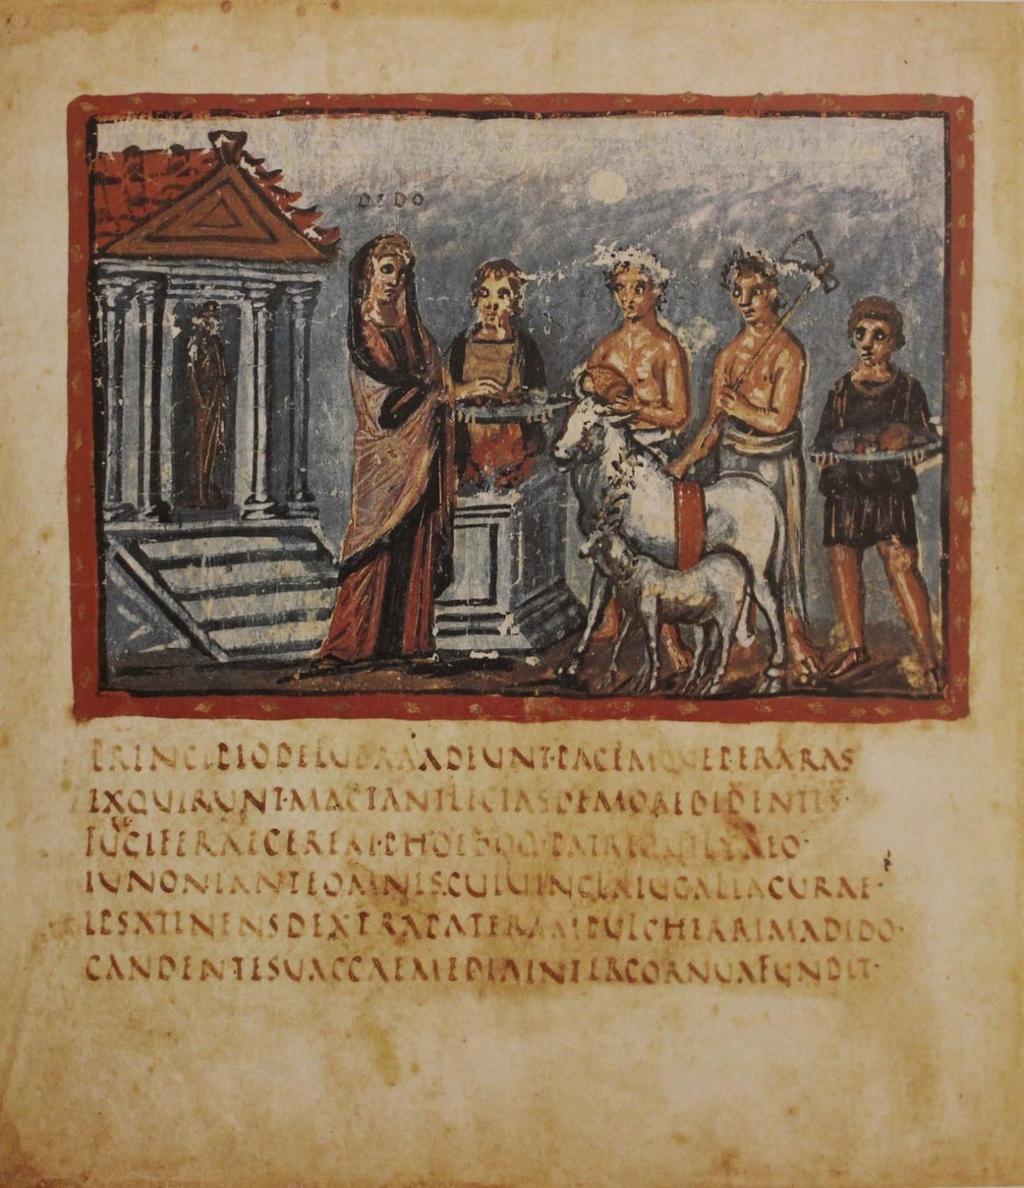 DIDO
PRINCIPIODELUBRAADEUNT·PACEMQUEPERARAS
EXQUIRUNT·MACTANTLECTASDEMOREBIDENTIS·
CERERI·PHOEBOQ·PATRIQ·LYAEO·
IUNONIANTEOMNIS·CUIUINCLAIUGALIACURAE·
IPSATENENSDEXTRAPATERAMPULCHERRIMADIDO·
CANDENTISUACCAEMEDIAINTERCORNUAFUNDIT·